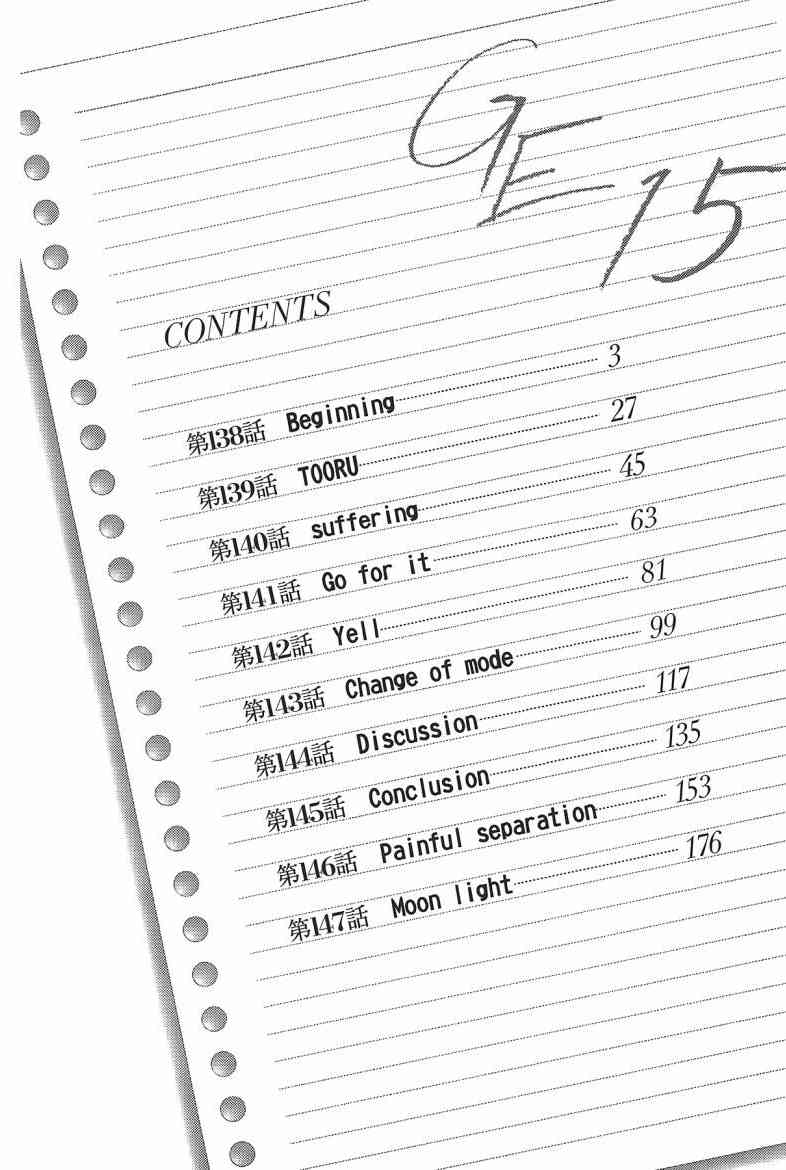 GE 15
CONTENTS
第138話 Beginning 3
第139話 TOORU 27
第140話 suffering 45
第141話 Go for it 63
第142話 Yell 81
第143話 Change of mode 99
第144話 Discussion 117
第145話 Conclusion 135
第146話 Painful separation 153
第147話 Moon light 176